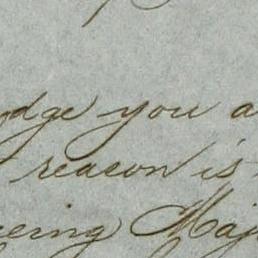 dge you a
reason is
eeing Maj